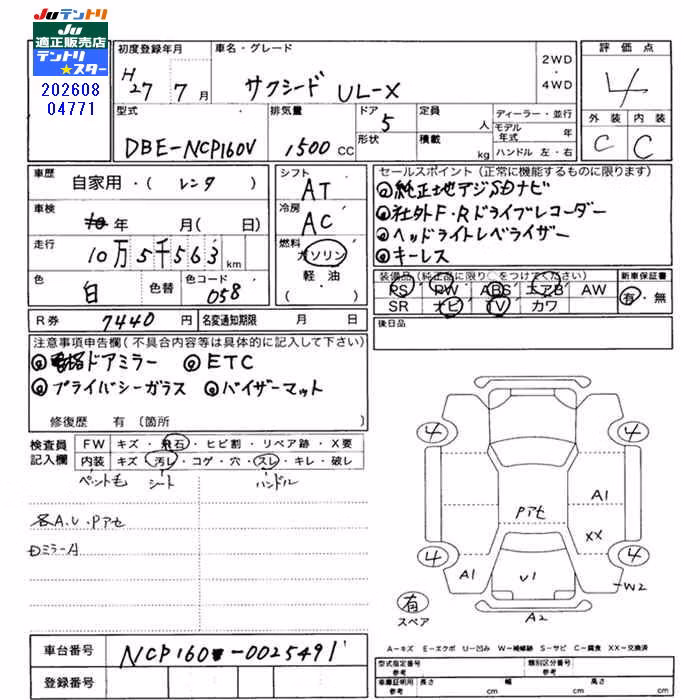 JUテントリ
JU
適正販売店
テントリ
★スター
202608
04771
初度登録年月
H27 7月
車名・グレード
サクシード UL-X
2WD
・
4WD
評価点
4
外装 内装
C C
型式
DBE-NCP160V
排気量
1500 CC
ドア 5
形状
定員 人
積載 kg
ディーラー・並行
モデル年式 年
ハンドル 左・右
車歴
自家用・(レンタ)
車検
年 月( 日)
走行
10万5千563 km
色
白
色替
色コード
058
シフト
AT
冷房
AC
燃料
ガソリン
軽油
セールスポイント(正常に機能するものに限ります)
◎純正地デジSDナビ
◎社外F・Rドライブレコーダー
◎ヘッドライトレベライザー
◎キーレス
装備品(純正品に限り○をつけてください)
PS PW ABS エアB AW
SR ナビ TV カワ
新車保証書
有・無
後日品
R券 7440 円
名変通知期限 月 日
注意事項申告欄(不具合内容等は具体的に記入して下さい)
◎電格ドアミラー ◎ETC
◎プライバシーガラス ◎バイザーマット
修復歴 有(箇所 )
検査員
記入欄
FW キズ・飛石・ヒビ割・リペア跡・X要
内装 キズ・汚レ・コゲ・穴・スレ・キレ・破レ
ペット毛 シート ハンドル
各A.U.Pアセ
DミラーA
4 4
A1
Pアセ
XX
4 4
A1 U1 W2
A2
有
スペア
A－キズ E－エクボ U－凹み W－補修跡 S－サビ C－腐食 XX－交換済
車台番号
NCP160-0025491
登録番号
型式指定番号 参考
類別区分番号 参考
車庫証明用 参考
長さ cm
幅 cm
高さ cm